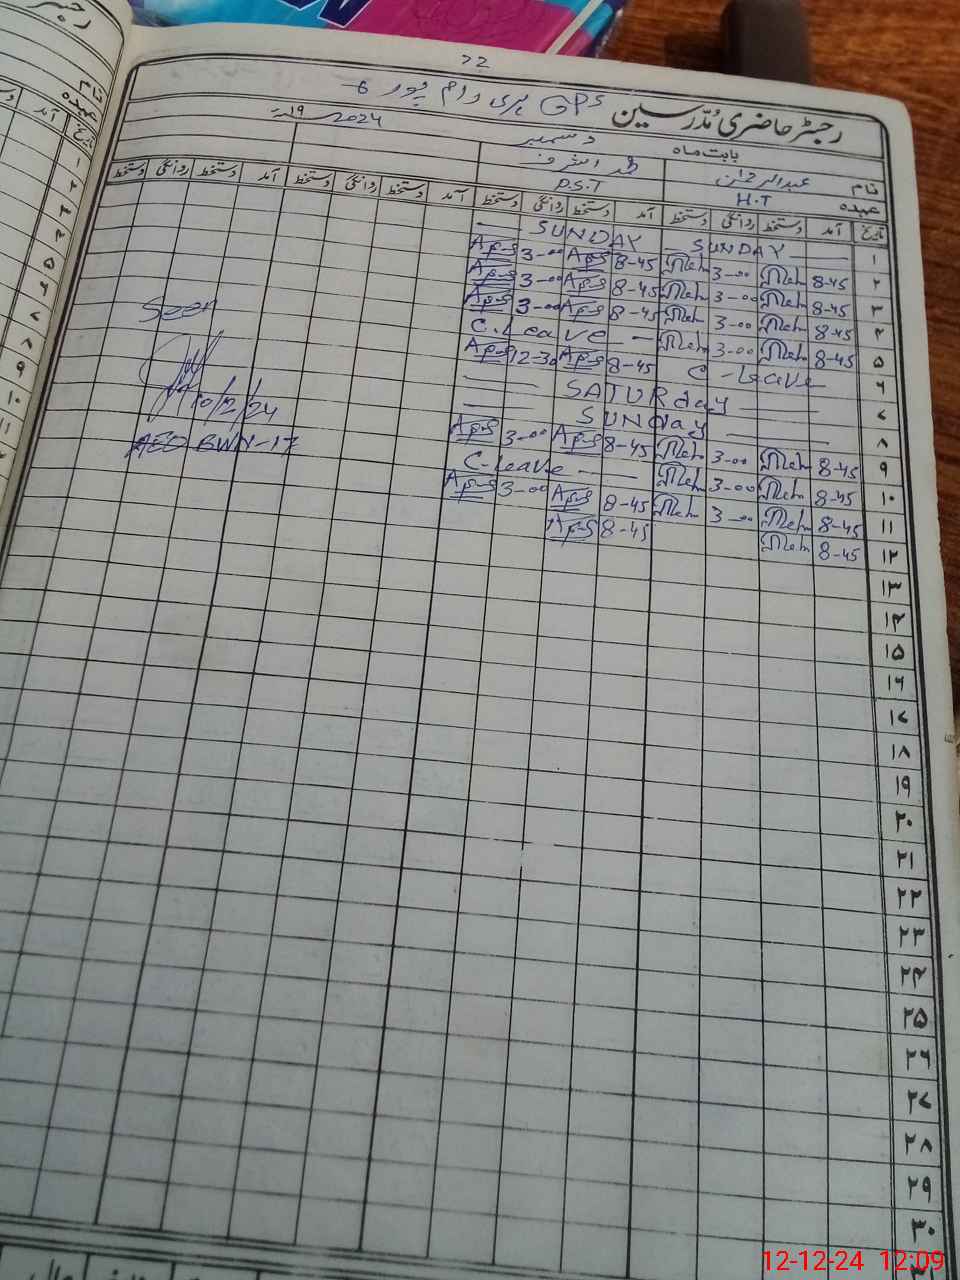 22
رجسٹر حاضری مدّرسین GPS ہری رام پور 6
بابت ماہ دسمبر 2024 19ء
نام عبدالرحمٰن محمد اشرف
عہدہ H.T P.S.T
تاریخ آمد دستخط روانگی دستخط آمد دستخط روانگی دستخط آمد دستخط روانگی دستخط آمد دستخط روانگی دستخط
۱ SUNDAY SUNDAY
۲ 8-45 3-00 8-45 3-00
۳ 8-45 3-00 8-45 3-00
۴ 8-45 3-00 8-45 3-00
۵ 8-45 3-00 C.Leave
۶ C-leave 8-45 12-30
۷ SATURday
۸ SUNday
۹ 8-45 3-00 8-45 3-00
۱۰ 8-45 3-00 C-Leave
۱۱ 8-45 3-00 8-45 3-00
۱۲ 8-45 8-45
۱۳
۱۴
۱۵
۱۶
۱۷
۱۸
۱۹
۲۰
۲۱
۲۲
۲۳
۲۴
۲۵
۲۶
۲۷
۲۸
۲۹
۳۰
Seen
10/12/24
AEO BWN-17
12-12-24 12:09